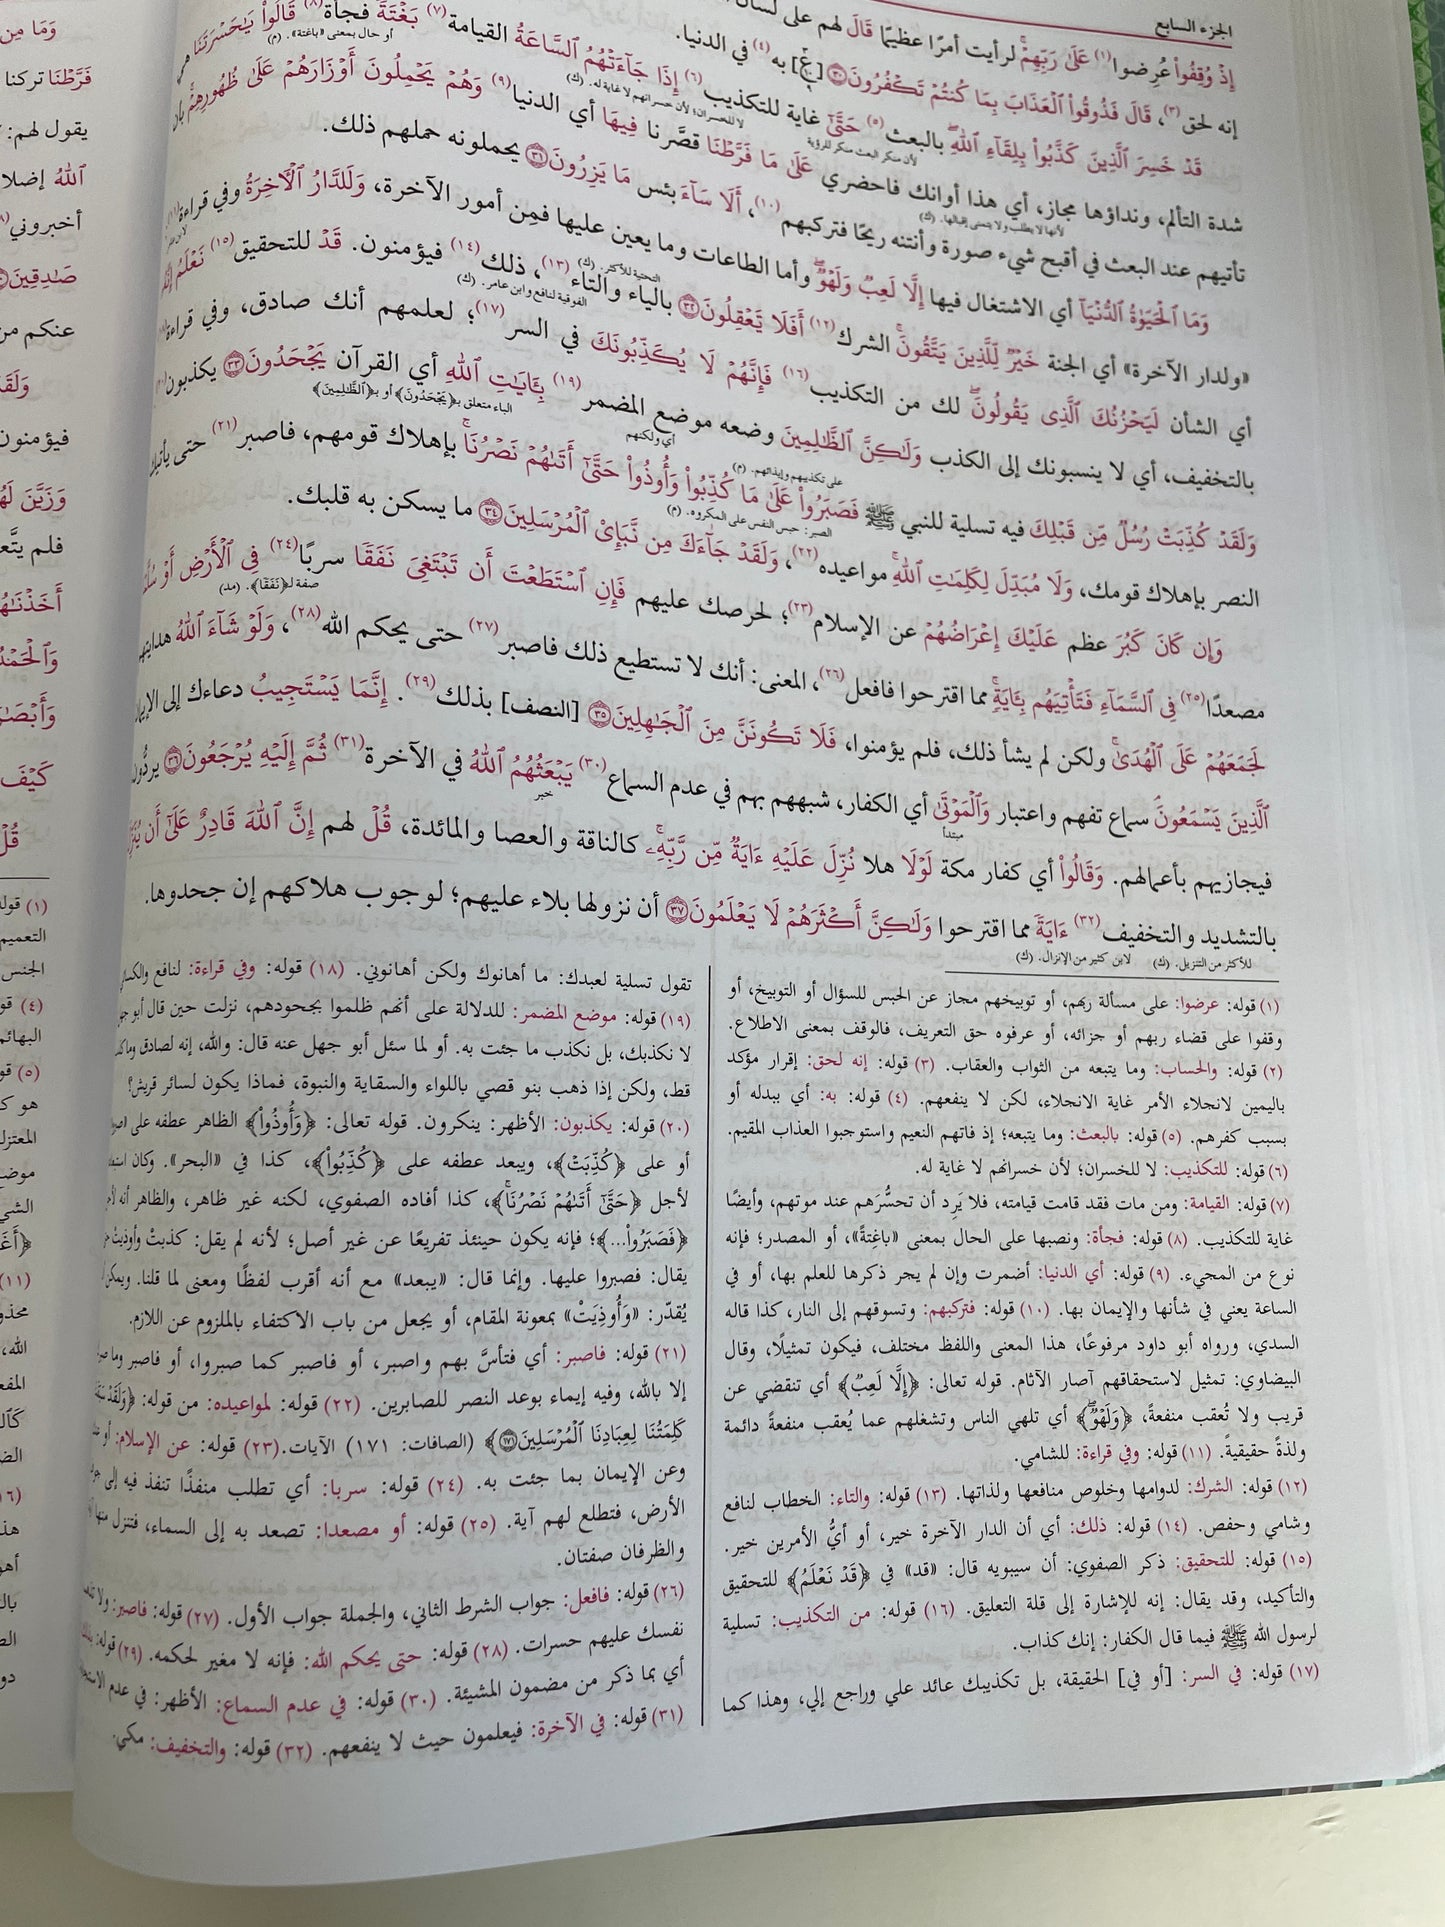 الجزء السابع
إِذْ وُقِفُواْ عُرِضوا(١) عَلَىٰ رَبِّهِمْ لرأيت أمرًا عظيمًا قَالَ لهم على لسان
إنه لحق(٣)، قَالَ فَذُوقُواْ ٱلْعَذَابَ بِمَا كُنتُمْ تَكْفُرُونَ ٣٠ [غ] به(٤) في الدنيا.
قَدْ خَسِرَ ٱلَّذِينَ كَذَّبُواْ بِلِقَآءِ ٱللَّهِ بالبعث(٥) حَتَّىٰٓ غاية للتكذيب(٦) إِذَا جَآءَتْهُمُ ٱلسَّاعَةُ القيامة(٧) بَغْتَةً فجأة(٨) قَالُواْ يَٰحَسْرَتَنَا
لأن منكر البعث منكر للرؤية
لا للخسران؛ لأن خسرانهم لا غاية له. (ك)
أو حال بمعنى «باغتة». (م)
شدة التألم، ونداؤها مجاز، أي هذا أوانك فاحضري عَلَىٰ مَا فَرَّطْنَا قصَّرنا فِيهَا أي الدنيا(٩) وَهُمْ يَحْمِلُونَ أَوْزَارَهُمْ عَلَىٰ ظُهُورِهِمْ بأن
تأتيهم عند البعث في أقبح شيء صورة وأنتنه ريحًا فتركبهم(١٠)، أَلَا سَآءَ بئس مَا يَزِرُونَ ٣١ يحملونه حملهم ذلك.
وَمَا ٱلْحَيَوٰةُ ٱلدُّنْيَآ أي الاشتغال فيها إِلَّا لَعِبٌ وَلَهْوٌ وأما الطاعات وما يعين عليها فمِن أمور الآخرة، وَلَلدَّارُ ٱلْأَخِرَةُ وفي قراءة(١١)
«ولدار الآخرة» أي الجنة خَيْرٌ لِّلَّذِينَ يَتَّقُونَ الشرك(١٢) أَفَلَا تَعْقِلُونَ ٣٢ بالياء والتاء(١٣)، ذلك(١٤) فيؤمنون. قَدْ للتحقيق(١٥) نَعْلَمُ إِنَّهُ
التحتية للأكثر. (ك)
الفوقية لنافع وابن عامر. (ك)
أي الشأن لَيَحْزُنُكَ ٱلَّذِى يَقُولُونَ لك من التكذيب(١٦) فَإِنَّهُمْ لَا يُكَذِّبُونَكَ في السر(١٧)؛ لعلمهم أنك صادق، وفي قراءة
بالتخفيف، أي لا ينسبونك إلى الكذب وَلَٰكِنَّ ٱلظَّٰلِمِينَ وضعه موضع المضمر(١٩) بِـَٔايَٰتِ ٱللَّهِ أي القرآن يَجْحَدُونَ ٣٣ يكذبون
أي ولكنهم
الباء متعلق بـ﴿يَجْحَدُونَ﴾ أو بـ﴿ٱلظَّٰلِمِينَ﴾
وَلَقَدْ كُذِّبَتْ رُسُلٌ مِّن قَبْلِكَ فيه تسلية للنبي ﷺ فَصَبَرُواْ عَلَىٰ مَا كُذِّبُواْ وَأُوذُواْ حَتَّىٰٓ أَتَىٰهُمْ نَصْرُنَا بإهلاك قومهم، فاصبر(٢١) حتى يأتيك
على تكذيبهم وإيذائهم. (م)
الصبر: حبس النفس على المكروه. (م)
النصر بإهلاك قومك، وَلَا مُبَدِّلَ لِكَلِمَٰتِ ٱللَّهِ مواعيده(٢٢)، وَلَقَدْ جَآءَكَ مِن نَّبَإِىْ ٱلْمُرْسَلِينَ ٣٤ ما يسكن به قلبك.
وَإِن كَانَ كَبُرَ عظم عَلَيْكَ إِعْرَاضُهُمْ عن الإسلام(٢٣)؛ لحرصك عليهم فَإِنِ ٱسْتَطَعْتَ أَن تَبْتَغِىَ نَفَقًا سربًا(٢٤) فِى ٱلْأَرْضِ أَوْ
صفة لـ﴿نَفَقًا﴾. (مد)
مصعدًا(٢٥) فِى ٱلسَّمَآءِ فَتَأْتِيَهُم بِـَٔايَةٍ مما اقترحوا فافعل(٢٦)، المعنى: أنك لا تستطيع ذلك فاصبر(٢٧) حتى يحكم الله(٢٨)، وَلَوْ شَآءَ ٱللَّهُ هدايتهم
لَجَمَعَهُمْ عَلَى ٱلْهُدَىٰ ولكن لم يشأ ذلك، فلم يؤمنوا، فَلَا تَكُونَنَّ مِنَ ٱلْجَٰهِلِينَ ٣٥ [النصف] بذلك(٢٩). إِنَّمَا يَسْتَجِيبُ دعاءك إلى الإيمان
ٱلَّذِينَ يَسْمَعُونَ سماع تفهم واعتبار وَٱلْمَوْتَىٰ أي الكفار، شبههم بهم في عدم السماع(٣٠) يَبْعَثُهُمُ ٱللَّهُ في الآخرة(٣١) ثُمَّ إِلَيْهِ يُرْجَعُونَ ٣٦ يردُّون
مبتدأ
خبر
فيجازيهم بأعمالهم. وَقَالُواْ أي كفار مكة لَوْلَا هلا نُزِّلَ عَلَيْهِ ءَايَةٌ مِّن رَّبِّهِۦ كالناقة والعصا والمائدة، قُلْ لهم إِنَّ ٱللَّهَ قَادِرٌ عَلَىٰٓ أَن يُنَزِّلَ
بالتشديد والتخفيف(٣٢) ءَايَةً مما اقترحوا وَلَٰكِنَّ أَكْثَرَهُمْ لَا يَعْلَمُونَ ٣٧ أن نزولها بلاء عليهم؛ لوجوب هلاكهم إن جحدوها.
للأكثر من التنزيل. (ك)
لابن كثير من الإنزال. (ك)
(١) قوله: عرضوا: على مسألة ربهم، أو توبيخهم مجاز عن الحبس للسؤال أو التوبيخ، أو
وقفوا على قضاء ربهم أو جزائه، أو عرفوه حق التعريف، فالوقف بمعنى الاطلاع.
(٢) قوله: والحساب: وما يتبعه من الثواب والعقاب. (٣) قوله: إنه لحق: إقرار مؤكد
باليمين لانجلاء الأمر غاية الانجلاء، لكن لا ينفعهم. (٤) قوله: به: أي ببدله أو
بسبب كفرهم. (٥) قوله: بالبعث: وما يتبعه؛ إذ فاتهم النعيم واستوجبوا العذاب المقيم.
(٦) قوله: للتكذيب: لا للخسران؛ لأن خسرانهم لا غاية له.
(٧) قوله: القيامة: ومن مات فقد قامت قيامته، فلا يَرِد أن تحسُّرَهم عند موتهم، وأيضًا
غاية للتكذيب. (٨) قوله: فجأة: ونصبها على الحال بمعنى «باغِتةً»، أو المصدر؛ فإنه
نوع من المجيء. (٩) قوله: أي الدنيا: أضمرت وإن لم يجر ذكرها للعلم بها، أو في
الساعة يعني في شأنها والإيمان بها. (١٠) قوله: فتركبهم: وتسوقهم إلى النار، كذا قاله
السدي، ورواه أبو داود مرفوعًا، هذا المعنى واللفظ مختلف، فيكون تمثيلًا، وقال
البيضاوي: تمثيل لاستحقاقهم آصار الآثام. قوله تعالى: ﴿إِلَّا لَعِبٌ﴾ أي تنقضي عن
قريب ولا تُعقب منفعةً، ﴿وَلَهْوٌ﴾ أي تلهي الناس وتشغلهم عما يُعقب منفعةً دائمة
ولذةً حقيقيةً. (١١) قوله: وفي قراءة: للشامي.
(١٢) قوله: الشرك: لدوامها وخلوص منافعها ولذاتها. (١٣) قوله: والتاء: الخطاب لنافع
وشامي وحفص. (١٤) قوله: ذلك: أي أن الدار الآخرة خير، أو أيُّ الأمرين خير.
(١٥) قوله: للتحقيق: ذكر الصفوي: أن سيبويه قال: «قد» في ﴿قَدْ نَعْلَمُ﴾ للتحقيق
والتأكيد، وقد يقال: إنه للإشارة إلى قلة التعليق. (١٦) قوله: من التكذيب: تسلية
لرسول الله ﷺ فيما قال الكفار: إنك كذاب.
(١٧) قوله: في السر: [أو في] الحقيقة، بل تكذيبك عائد علي وراجع إلي، وهذا كما
تقول تسلية لعبدك: ما أهانوك ولكن أهانوني. (١٨) قوله: وفي قراءة: لنافع والكسائي
(١٩) قوله: موضع المضمر: للدلالة على أنهم ظلموا بجحودهم، نزلت حين قال أبو جهل
لا نكذبك، بل نكذب ما جئت به. أو لما سئل أبو جهل عنه قال: والله، إنه لصادق وما كذب
قط، ولكن إذا ذهب بنو قصي باللواء والسقاية والنبوة، فماذا يكون لسائر قريش؟
(٢٠) قوله: يكذبون: الأظهر: ينكرون. قوله تعالى: ﴿وَأُوذُواْ﴾ الظاهر عطفه على
أو على ﴿كُذِّبَتْ﴾، ويبعد عطفه على ﴿كُذِّبُواْ﴾، كذا في «البحر». وكان
لأجل ﴿حَتَّىٰٓ أَتَىٰهُمْ نَصْرُنَا﴾، كذا أفاده الصفوي، لكنه غير ظاهر، والظاهر أنه
﴿فَصَبَرُواْ...﴾؛ فإنه يكون حينئذ تفريعًا عن غير أصل؛ لأنه لم يقل: كذبتْ وأوذيتْ
يقال: فصبروا عليها. وإنما قال: «يبعد» مع أنه أقرب لفظًا ومعنى لما قلنا. ويمكن
يُقدّر: «وَأُوذِيَتْ» بمعونة المقام، أو يجعل من باب الاكتفاء بالملزوم عن اللازم.
(٢١) قوله: فاصبر: أي فتأسَّ بهم واصبر، أو فاصبر كما صبروا، أو فاصبر وما
إلا بالله، وفيه إيماء بوعد النصر للصابرين. (٢٢) قوله: لمواعيده: من قوله: ﴿وَلَقَدْ سَبَقَتْ
كَلِمَتُنَا لِعِبَادِنَا ٱلْمُرْسَلِينَ ١٧١﴾ (الصافات: ١٧١) الآيات.(٢٣) قوله: عن الإسلام: أو
وعن الإيمان بما جئت به. (٢٤) قوله: سربا: أي تطلب منفذًا تنفذ فيه إلى
الأرض، فتطلع لهم آية. (٢٥) قوله: أو مصعدا: تصعد به إلى السماء، فتنزل منها
والظرفان صفتان.
(٢٦) قوله: فافعل: جواب الشرط الثاني، والجملة جواب الأول. (٢٧) قوله: فاصبر: ولا
نفسك عليهم حسرات. (٢٨) قوله: حتى يحكم الله: فإنه لا مغير لحكمه. (٢٩) قوله:
أي بما ذكر من مضمون المشيئة. (٣٠) قوله: في عدم السماع: الأظهر: في عدم
(٣١) قوله: في الآخرة: فيعلمون حيث لا ينفعهم. (٣٢) قوله: والتخفيف: مكي.
وَمَا مِن
فَرَّطْنَا تركنا
يقول لهم:
ٱللَّهُ إضلا
أخبروني
صَٰدِقِينَ
عنكم من
وَلَقَدْ
فيؤمنون
وَزَيَّنَ لَهُ
فلم يتَّع
أَخَذْنَٰهُ
وَٱلْحَمْدُ
وَأَبْصَٰرَ
كَيْفَ
قُلْ
(١) قوله
التعميم
الجنس
(٤) قو
البهائم
(٥) قو
هو ك
المعتزل
موضع
الشي
(١١)
محذو
الله،
المفع